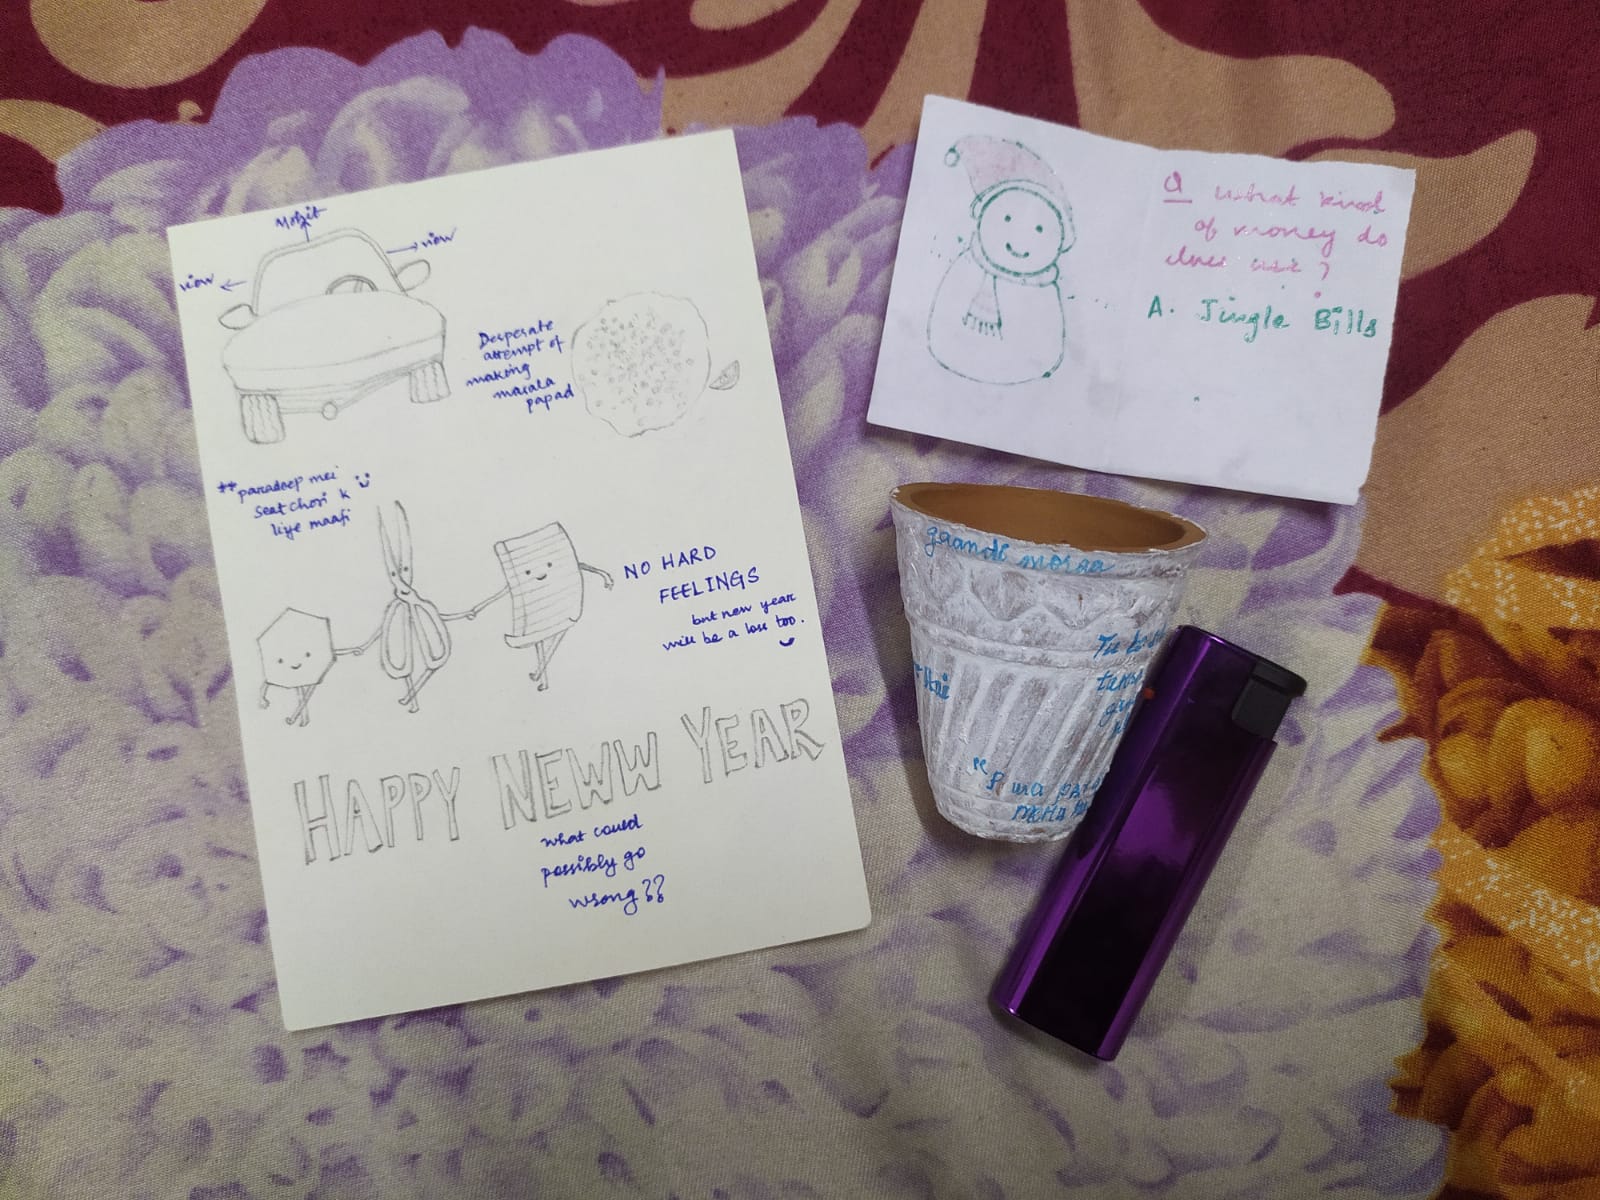 Mohit
view
view
Desperate
attempt of
making
masala
papad
**paradeep mei
seat chori k
liye maafi
NO HARD
FEELINGS
but new year
will be a loss too.
HAPPY NEWW YEAR
what could
possibly go
wrong??
Q what kind
of money do
use?
A. Jingle Bills
gaandi
Tu to
hai